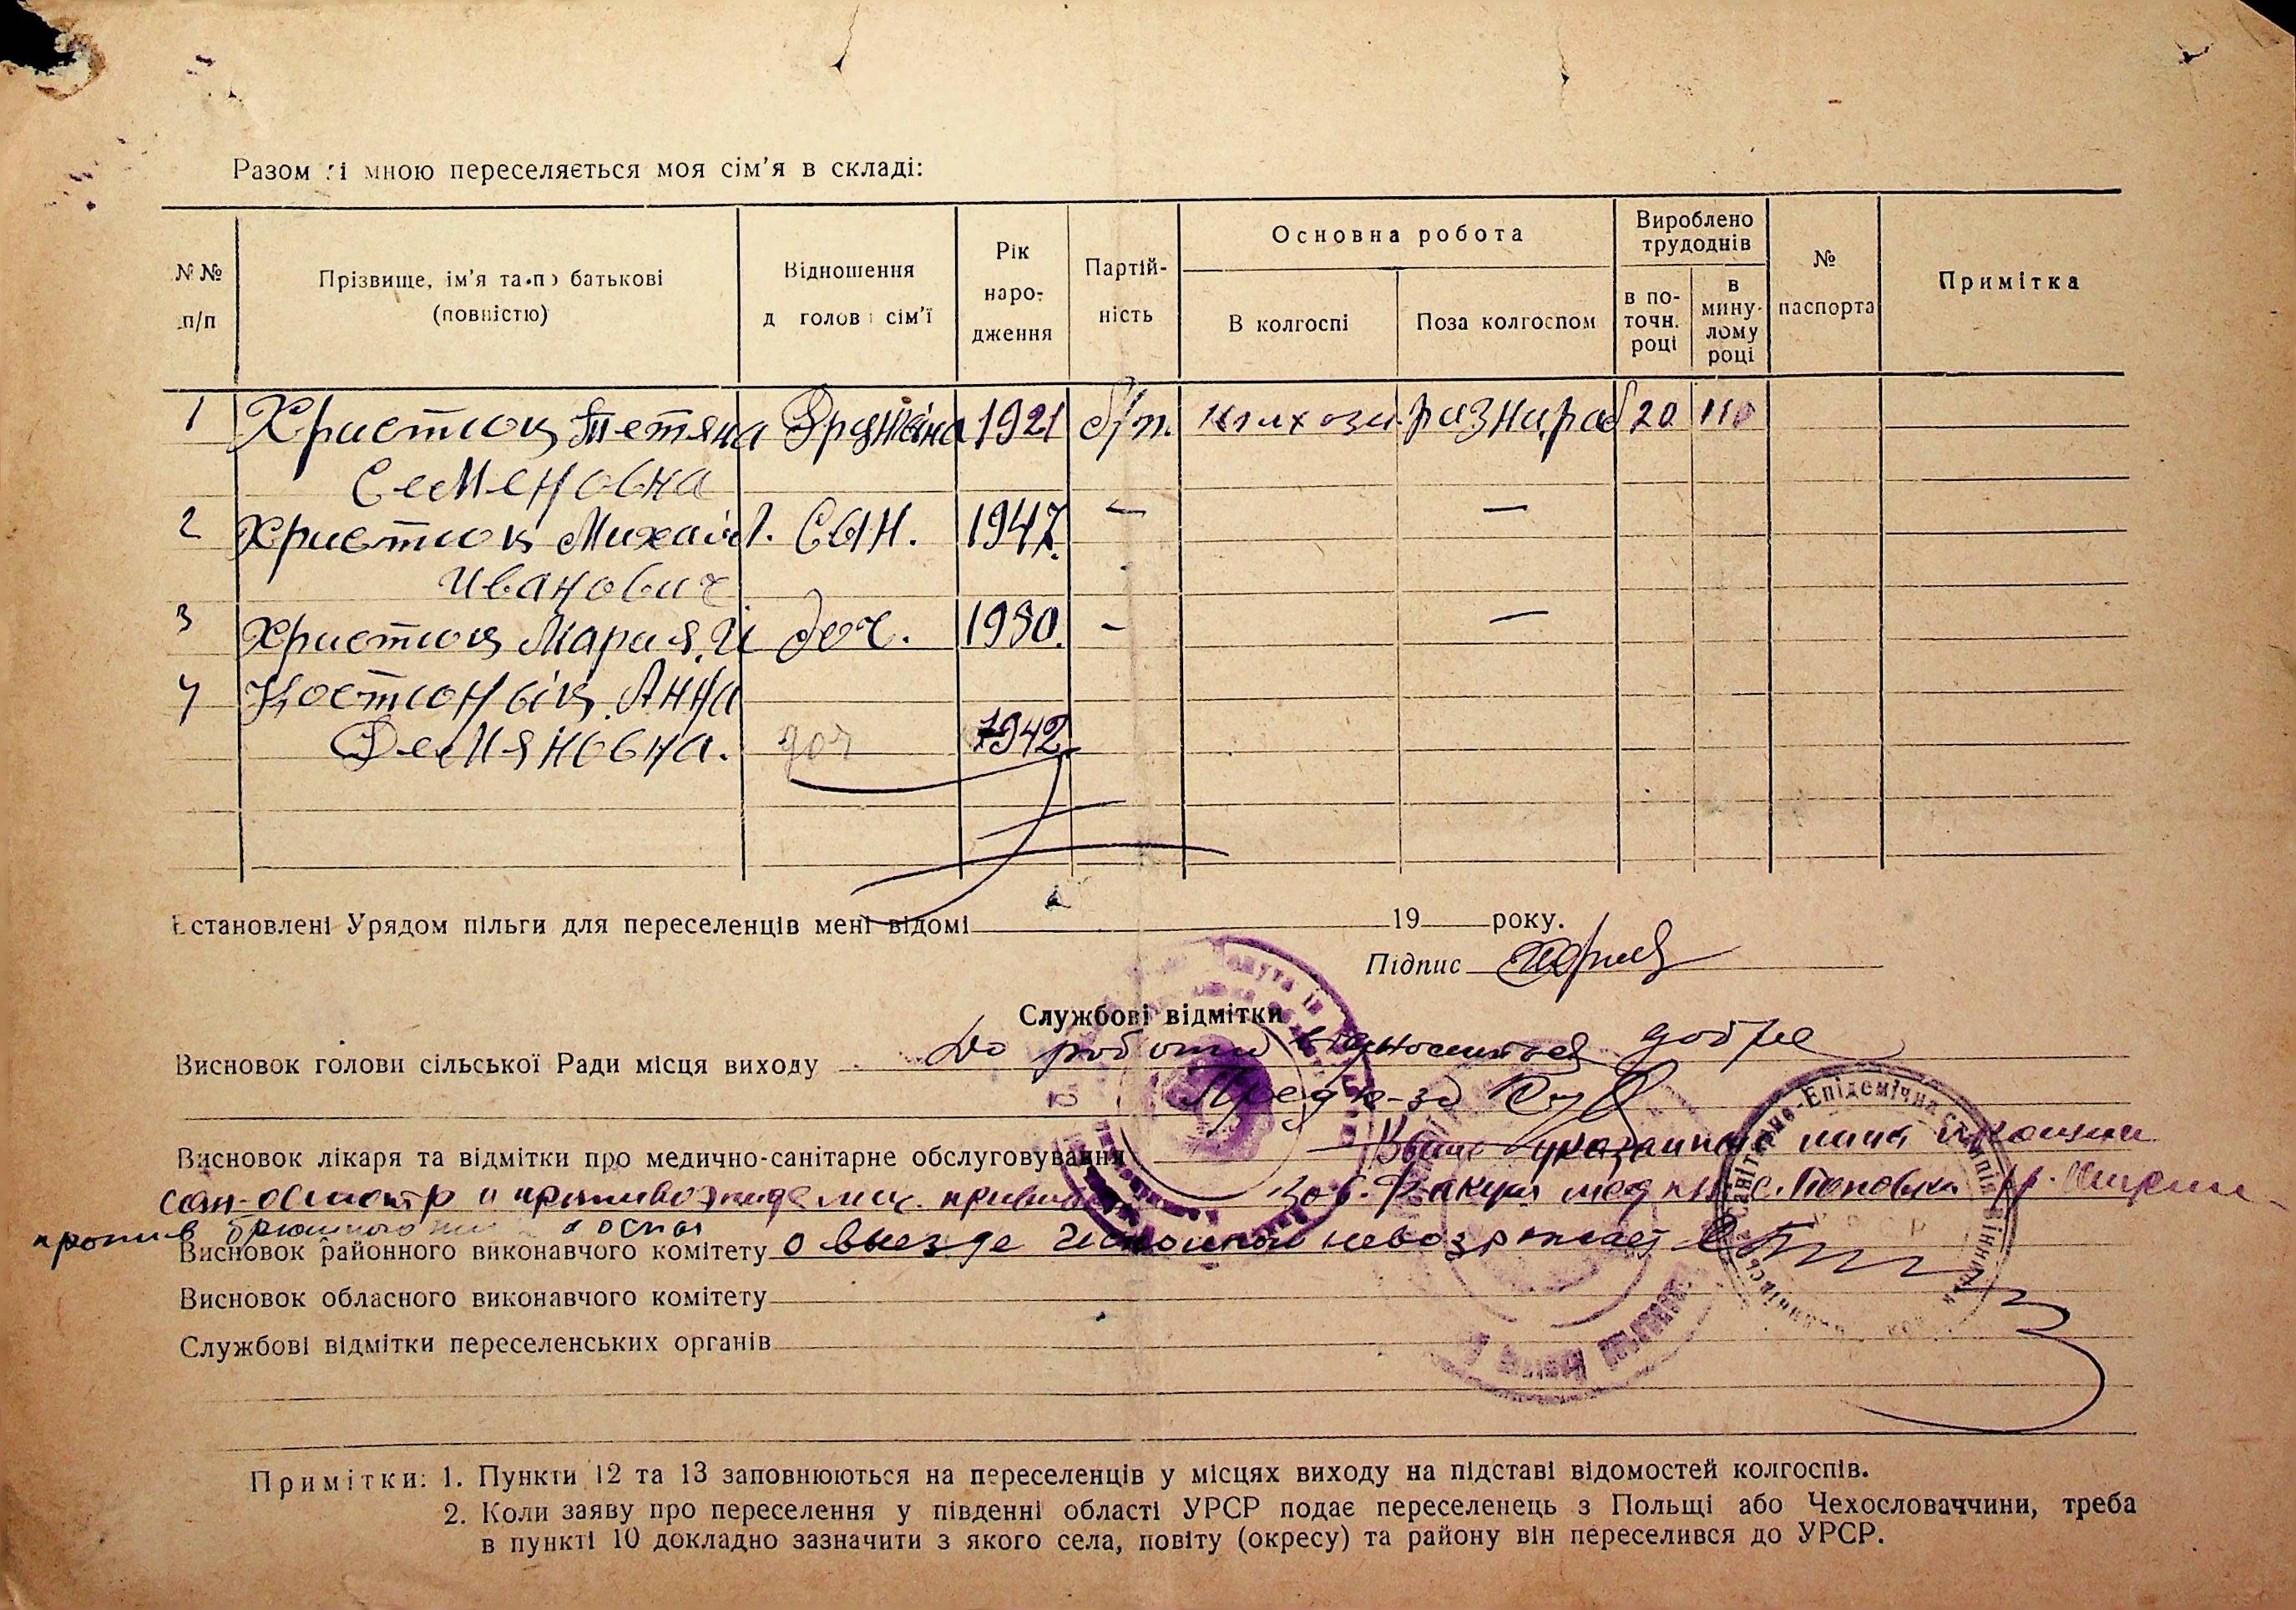 Разом зі мною переселяється моя сім’я в складі:
№№ п/п
Прізвище, ім’я та по батькові (повністю)
Відношення д голов сім’ї
Рік народження
Партійність
Основна робота
В колгоспі
Поза колгоспом
Вироблено трудоднів
в поточн. році
в минулому році
№ паспорта
Примітка
1 Христюк Тетяна Дружина 1921 б/п. разнораб 20 110
Семеновна
2 Христюк Михаіл. Сын. 1947. — —
Иванович
3 Христюк Мария. И доч. 1950. — —
4 Костюнык Анна
Демяновна. доч 1942
Встановлені Урядом пільги для переселенців мені відомі 19 року.
Підпис
Службові відмітки
Висновок голови сільської Ради місця виходу До роботи відноситься добре
Пред к-за
Висновок лікаря та відмітки про медично-санітарне обслуговування
сан-осмотр и
против брюшного
Висновок районного виконавчого комітету о выезде невозражает
Висновок обласного виконавчого комітету
Службові відмітки переселенських органів
Примітки: 1. Пункти 12 та 13 заповнюються на переселенців у місцях виходу на підставі відомостей колгоспів.
2. Коли заяву про переселення у південні області УРСР подає переселенець з Польщі або Чехословаччини, треба
в пункті 10 докладно зазначити з якого села, повіту (окресу) та району він переселився до УРСР.